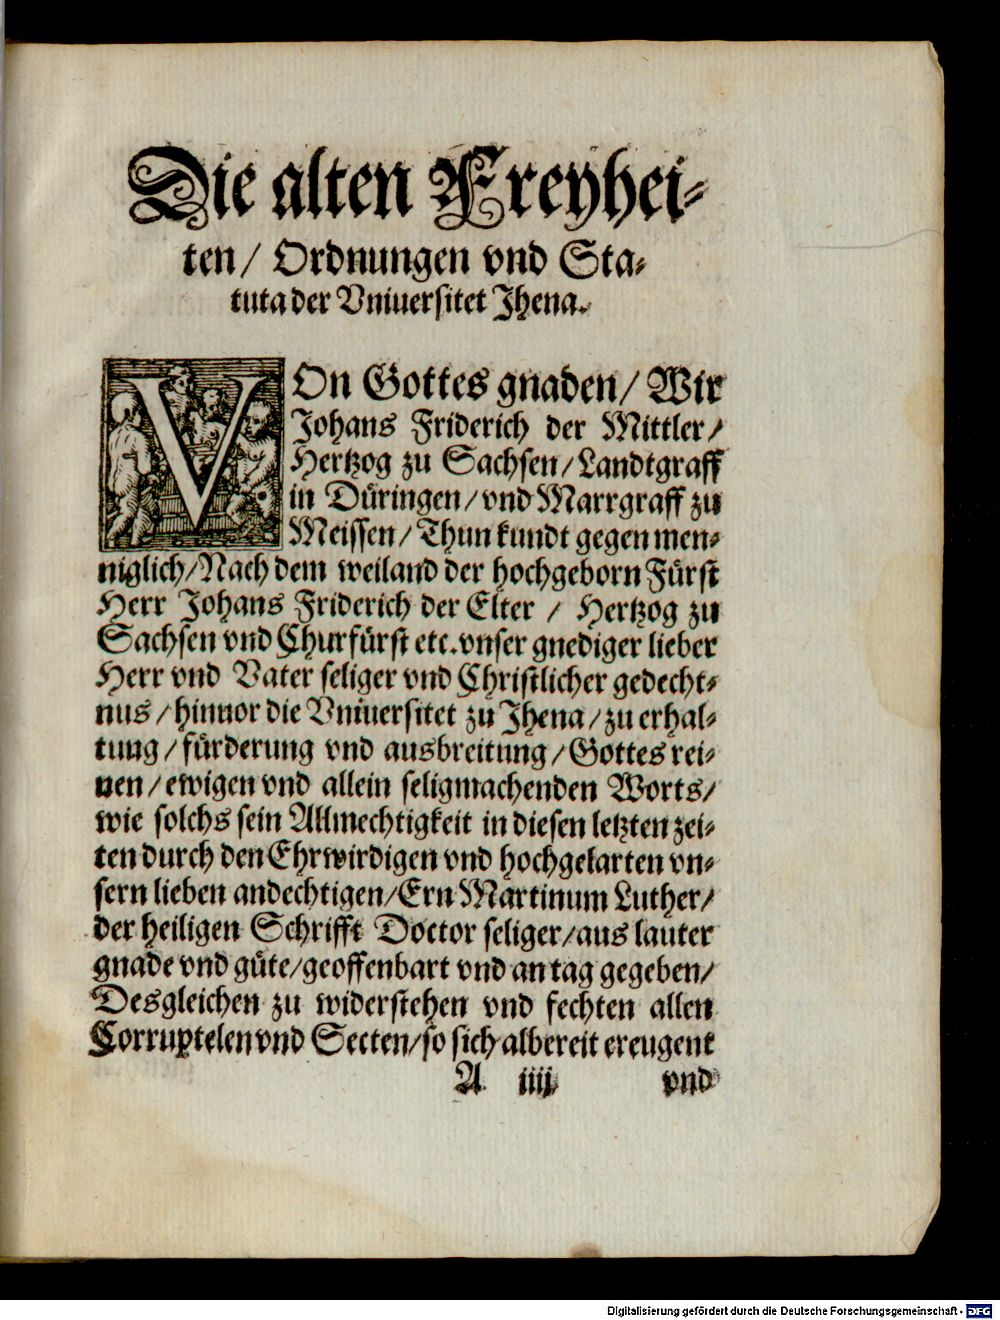 Die alten Freyhei-
ten/ Ordnungen vnd Sta-
tuta der Vniuersitet Jhena.
VOn Gottes gnaden/ Wir
Johans Friderich der Mittler/
Hertzog zu Sachsen/Landtgraff
in Düringen/vnd Marrgraff zu
Meissen/ Thun kundt gegen men-
niglich/Nach dem weiland der hochgeborn Fürst
Herr Johans Friderich der Elter / Hertzog zu
Sachsen vnd Churfürst etc.vnser gnediger lieber
Herr vnd Vater seliger vnd Christlicher gedecht-
nus/hinuor die Vniuersitet zu Jhena/zu erhal-
tung/fürderung vnd ausbreitung/Gottes rei-
nen/ewigen vnd allein seligmachenden Worts/
wie solchs sein Allmechtigkeit in diesen letzten zei-
ten durch den Ehrwirdigen vnd hochgelarten vn-
sern lieben andechtigen/Ern Martinum Luther/
der heiligen Schrifft Doctor seliger/aus lauter
gnade vnd güte/geoffenbart vnd an tag gegeben/
Desgleichen zu widerstehen vnd fechten allen
Corruptelen vnd Secten/so sich albereit ereugent
A iiij vnd
Digitalisierung gefördert durch die Deutsche Forschungsgemeinschaft - DFG